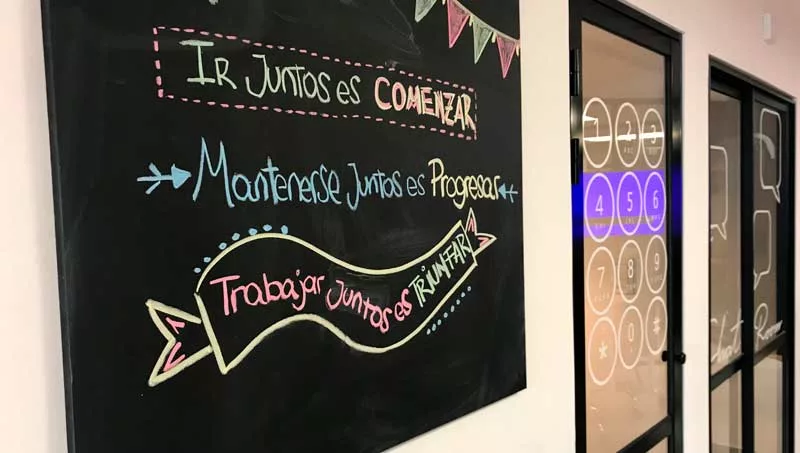 Ir Juntos es COMENZAR
Mantenerse Juntos es Progresar
Trabajar Juntos es TRIUNFAR
1 2 3
4 5 6
7 8 9
* 0 #
Chat Room